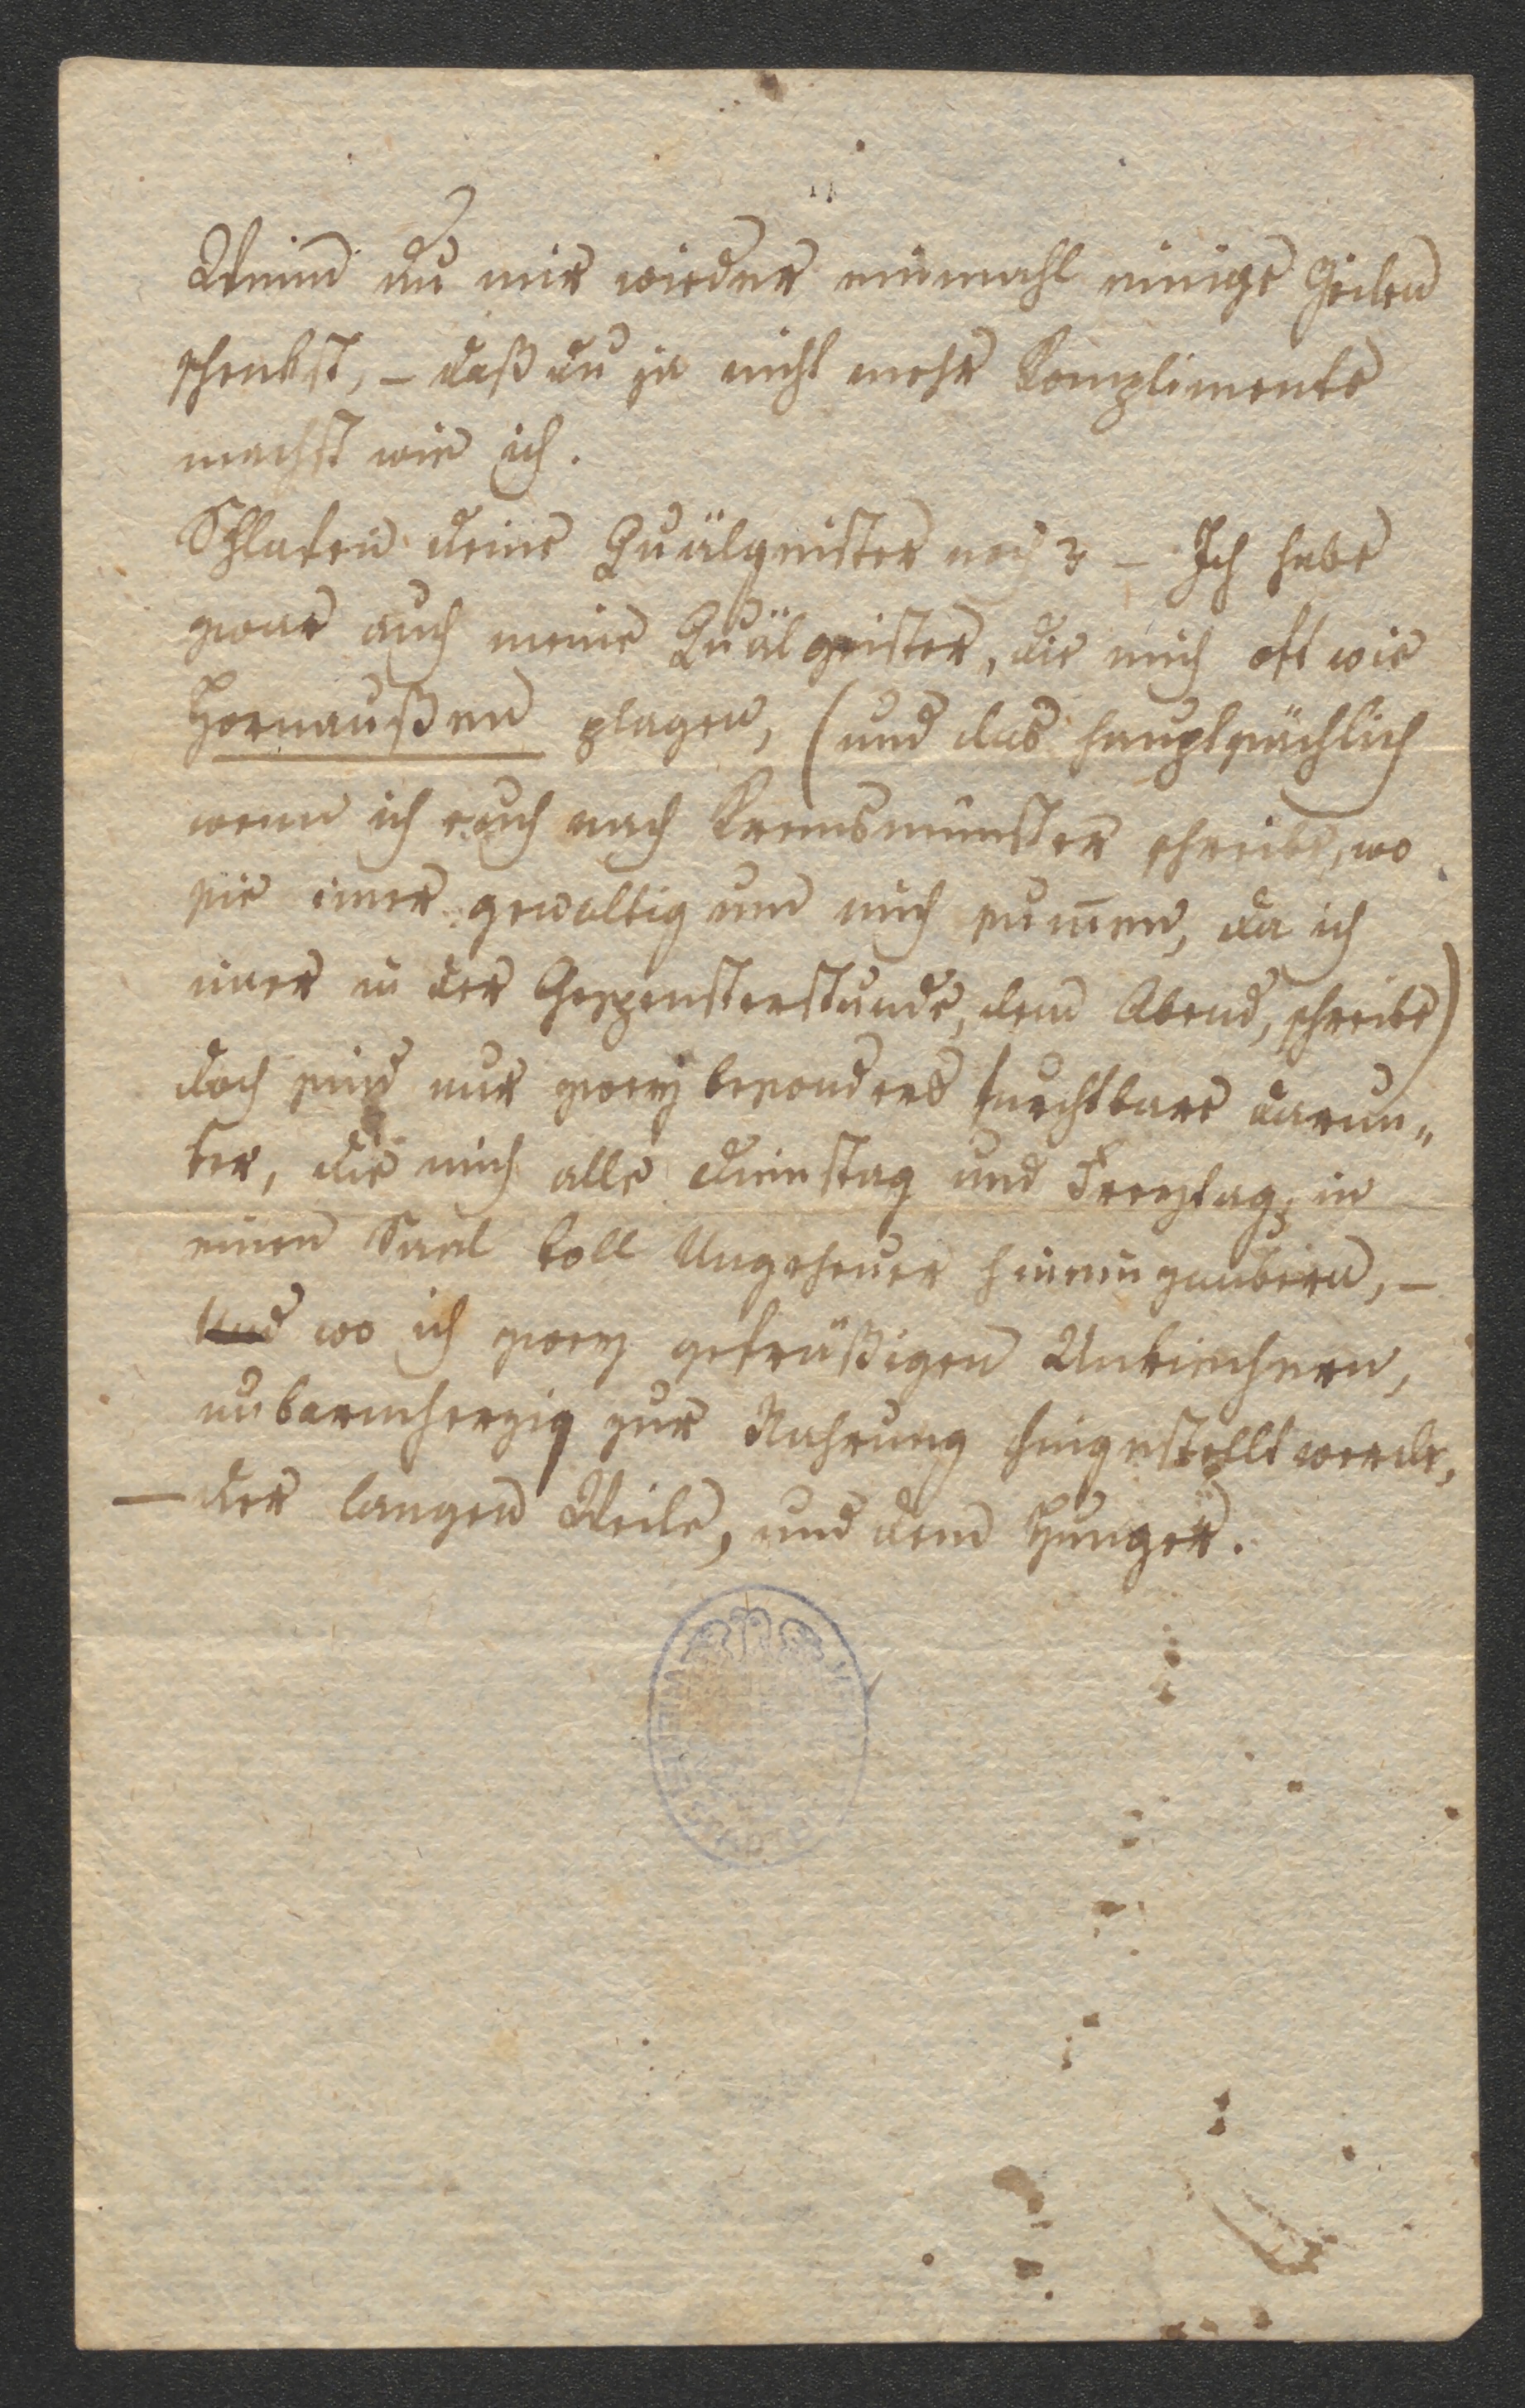 Wenn du mir wieder einmahl einige Zeilen
schenkst, – daß du ja nicht mehr Komplimente
machst wie ich.
Schlafen deine Quälgeister noch? – Ich habe
zwar auch meine Quälgeister, die mich oft wie
Hornaußen plagen, (und das hauptsächlich
wenn ich euch nach Kremsmünster schreibe, wo
sie im̄er gewaltig um mich sum̄en, da ich
im̄er in der Gespensterstunde, dem Abend, schreibe)
doch sind nur zwey besonders furchtbare darun„
ter, die mich alle Dienstag und Freytag, in
einen Saal voll Ungeheuer hineinzaubern, –
Und wo ich zwey gefräßigen Unthieren,
unbarmherzig zur Nahrung hingestellt werde,
– der langen Weile, und dem Hunger.